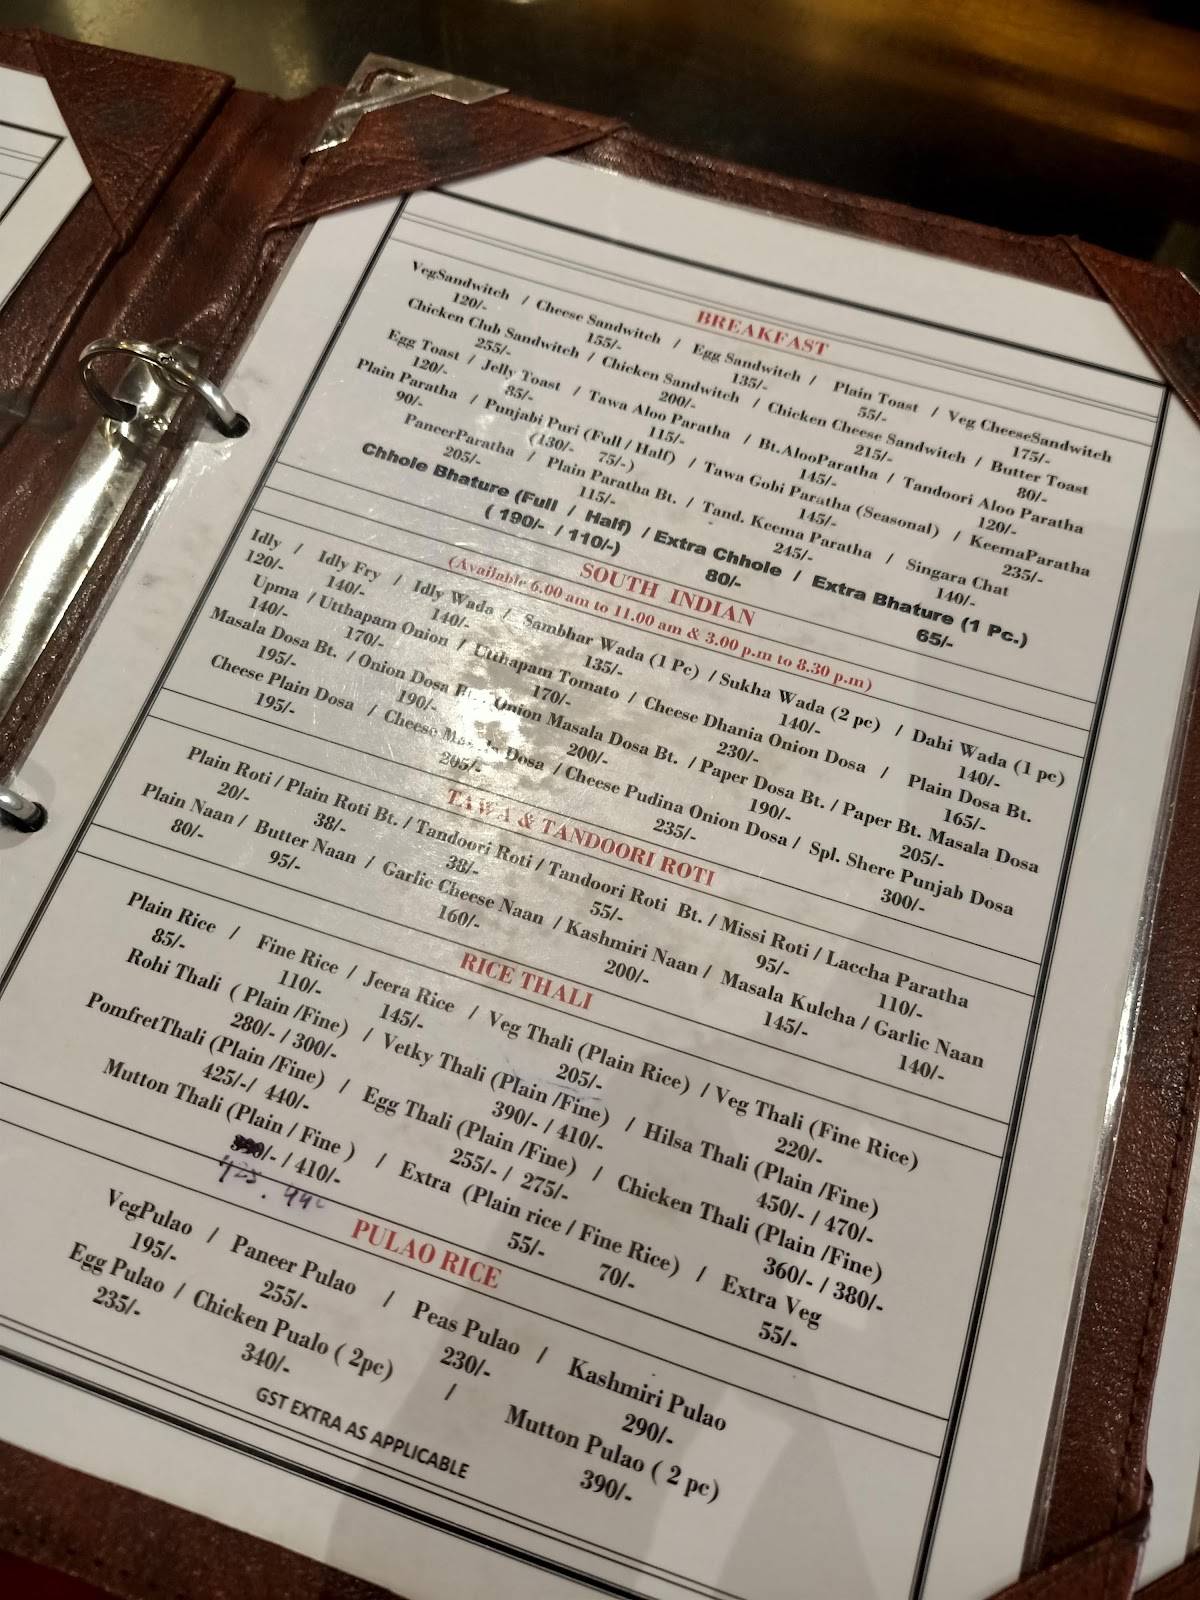 BREAKFAST
VegSandwitch / Cheese Sandwitch / Egg Sandwitch / Plain Toast / Veg CheeseSandwitch
120/- 155/- 135/- 55/- 175/-
Chicken Club Sandwitch / Chicken Sandwitch / Chicken Cheese Sandwitch / Butter Toast
255/- 200/- 215/- 80/-
Egg Toast / Jelly Toast / Tawa Aloo Paratha / Bt.AlooParatha / Tandoori Aloo Paratha
120/- 85/- 115/- 145/- 120/-
Plain Paratha / Punjabi Puri (Full / Half) / Tawa Gobi Paratha (Seasonal) / KeemaParatha
90/- (130/- 75/-) 145/- 235/-
PaneerParatha / Plain Paratha Bt. / Tand. Keema Paratha / Singara Chat
205/- 115/- 245/- 140/-
Chhole Bhature (Full / Half) / Extra Chhole / Extra Bhature (1 Pc.)
( 190/- / 110/-) 80/- 65/-
SOUTH INDIAN
(Available 6.00 am to 11.00 am & 3.00 p.m to 8.30 p.m)
Idly / Idly Fry / Idly Wada / Sambhar Wada (1 Pc) / Sukha Wada (2 pc) / Dahi Wada (1 pc)
120/- 140/- 140/- 135/- 140/- 140/-
Upma / Utthapam Onion / Utthapam Tomato / Cheese Dhania Onion Dosa / Plain Dosa Bt.
140/- 170/- 170/- 230/- 165/-
Masala Dosa Bt. / Onion Dosa Onion Masala Dosa Bt. / Paper Dosa Bt. / Paper Bt. Masala Dosa
195/- 190/- 200/- 190/- 205/-
Cheese Plain Dosa / Cheese Masala Dosa / Cheese Pudina Onion Dosa / Spl. Shere Punjab Dosa
195/- 205/- 235/- 300/-
TAWA & TANDOORI ROTI
Plain Roti / Plain Roti Bt. / Tandoori Roti / Tandoori Roti Bt. / Missi Roti / Laccha Paratha
20/- 38/- 38/- 55/- 95/- 110/-
Plain Naan / Butter Naan / Garlic Cheese Naan / Kashmiri Naan / Masala Kulcha / Garlic Naan
80/- 95/- 160/- 200/- 145/- 140/-
RICE THALI
Plain Rice / Fine Rice / Jeera Rice / Veg Thali (Plain Rice) / Veg Thali (Fine Rice)
85/- 110/- 145/- 205/- 220/-
Rohi Thali ( Plain /Fine) / Vetky Thali (Plain /Fine) / Hilsa Thali (Plain /Fine)
280/- / 300/- 390/- / 410/- 450/- / 470/-
PomfretThali (Plain /Fine) / Egg Thali (Plain /Fine) / Chicken Thali (Plain /Fine)
425/-/ 440/- 255/- / 275/- 360/- / 380/-
Mutton Thali (Plain / Fine ) / Extra (Plain rice / Fine Rice) / Extra Veg
/- / 410/- 55/- 70/- 55/-
425 .
PULAO RICE
VegPulao / Paneer Pulao / Peas Pulao / Kashmiri Pulao
195/- 255/- 230/- 290/-
Egg Pulao / Chicken Pualo ( 2pc) / Mutton Pulao ( 2 pc)
235/- 340/- 390/-
GST EXTRA AS APPLICABLE